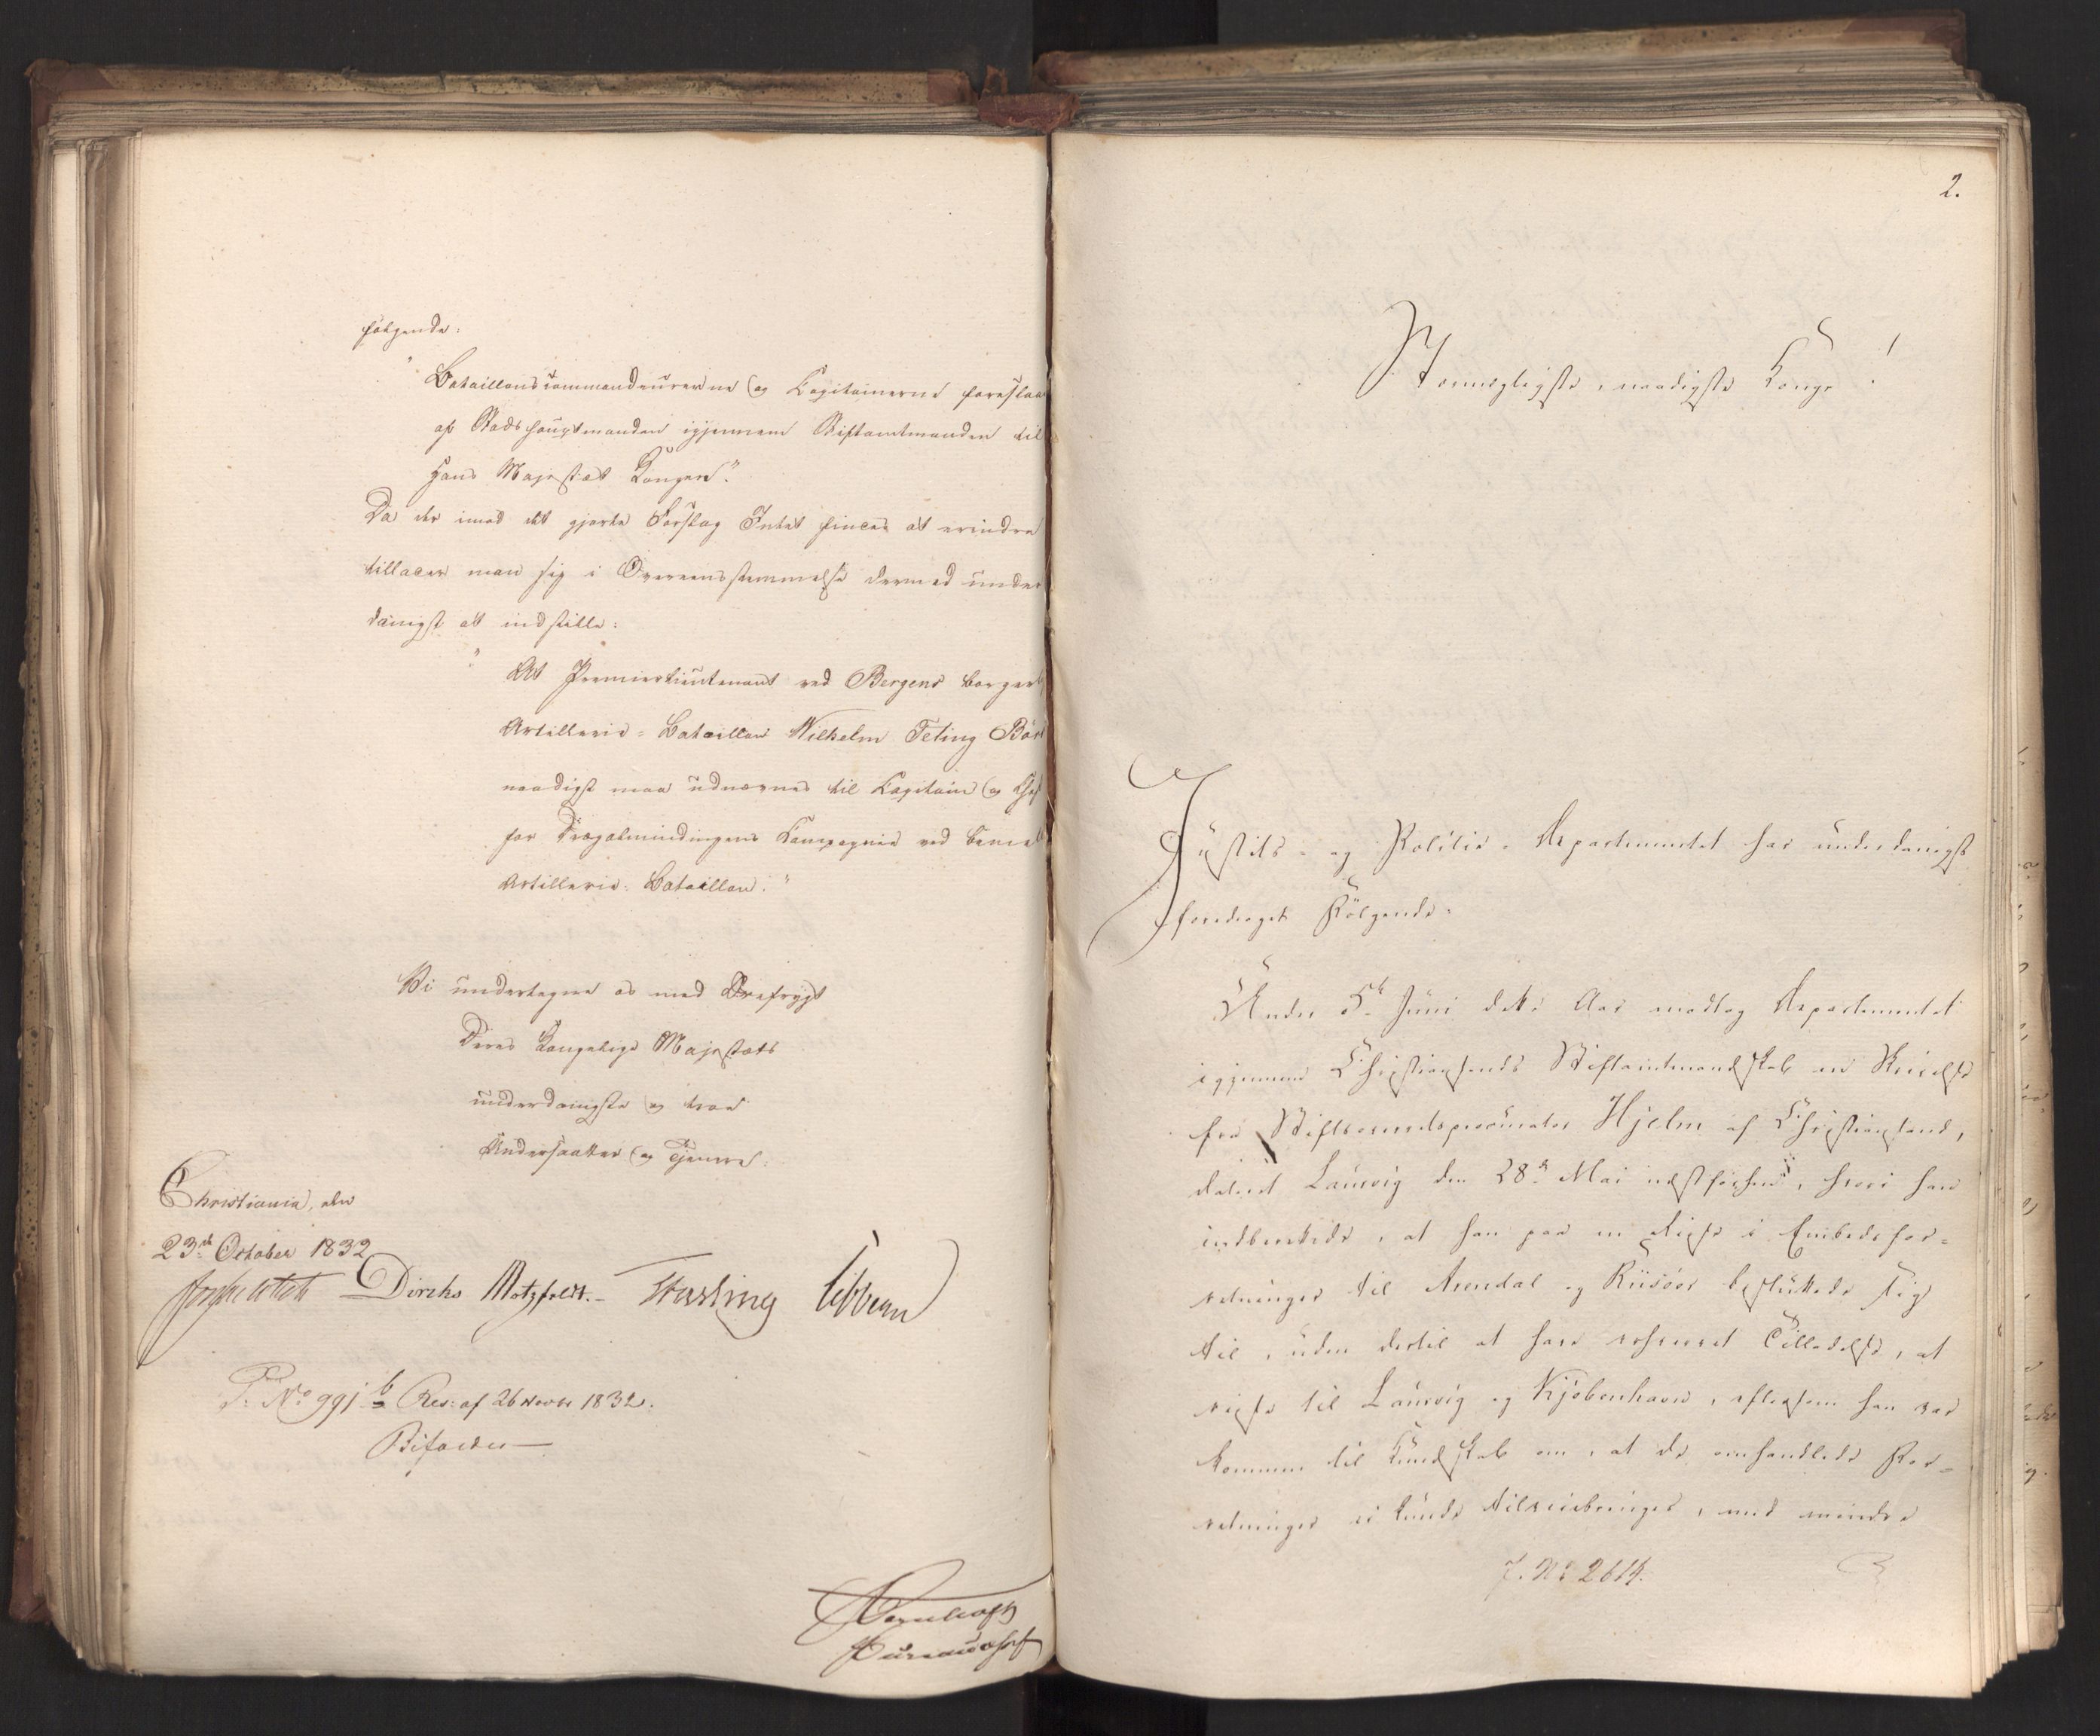 følgende:
"Bataillonscommandeurerne og Capitainerne foreslaaes
af Stadshauptmanden igjennem Stiftamtmanden til
Hans Majestæt Kongen".
Da der imod det gjorte Forslag Intet findes at erindre
tillader man sig i Overeensstemmelse dermed under
danigst at indstille:
"At Premierlieutenant ved Bergens borgerl
Artillerie-Bataillon Wilhelm Feting Bö
naadigst maa udnævnes til Capitain og Chef
for Compagnie ved bemel
Artillerie-Bataillon."
Vi undertegne os med Ærefrygt
Deres Kongelige Majestæts
underdanigste og troe
Undersaatter og Tjenere.
Christiania, den
23de October 1832
Diriks Motzfeldt.- Fasting Vibe
P: No 991 b Res: af 26 Novbr 1832.
Bifaldes
2.
Stormægtigste, naadigste Konge!
Justits- og Politie-Departementet har underdanigst
foredraget Følgende:
Under 5te Juni dette Aar modtog Departementet
igjennem Christiansands Stiftamtmandskab en Skrivelse
fra Stiftsoverretsprocurator Hjelm af Christiansand,
dateret Laurvig den 28de Mai næstforhen, hvori han
indberettede, at han paa en Reise i Embedsfor=
retninger til Arendal og Riisøer besluttede sig
til, uden dertil at have erhvervet Tilladelse, at
reise til Laurvig og Kjøbenhavn, eftersom han var
kommen til Kundskab om, at de omhandlede For=
retninger ei kunde tilveiebringes, med mindre
J. No 2614.